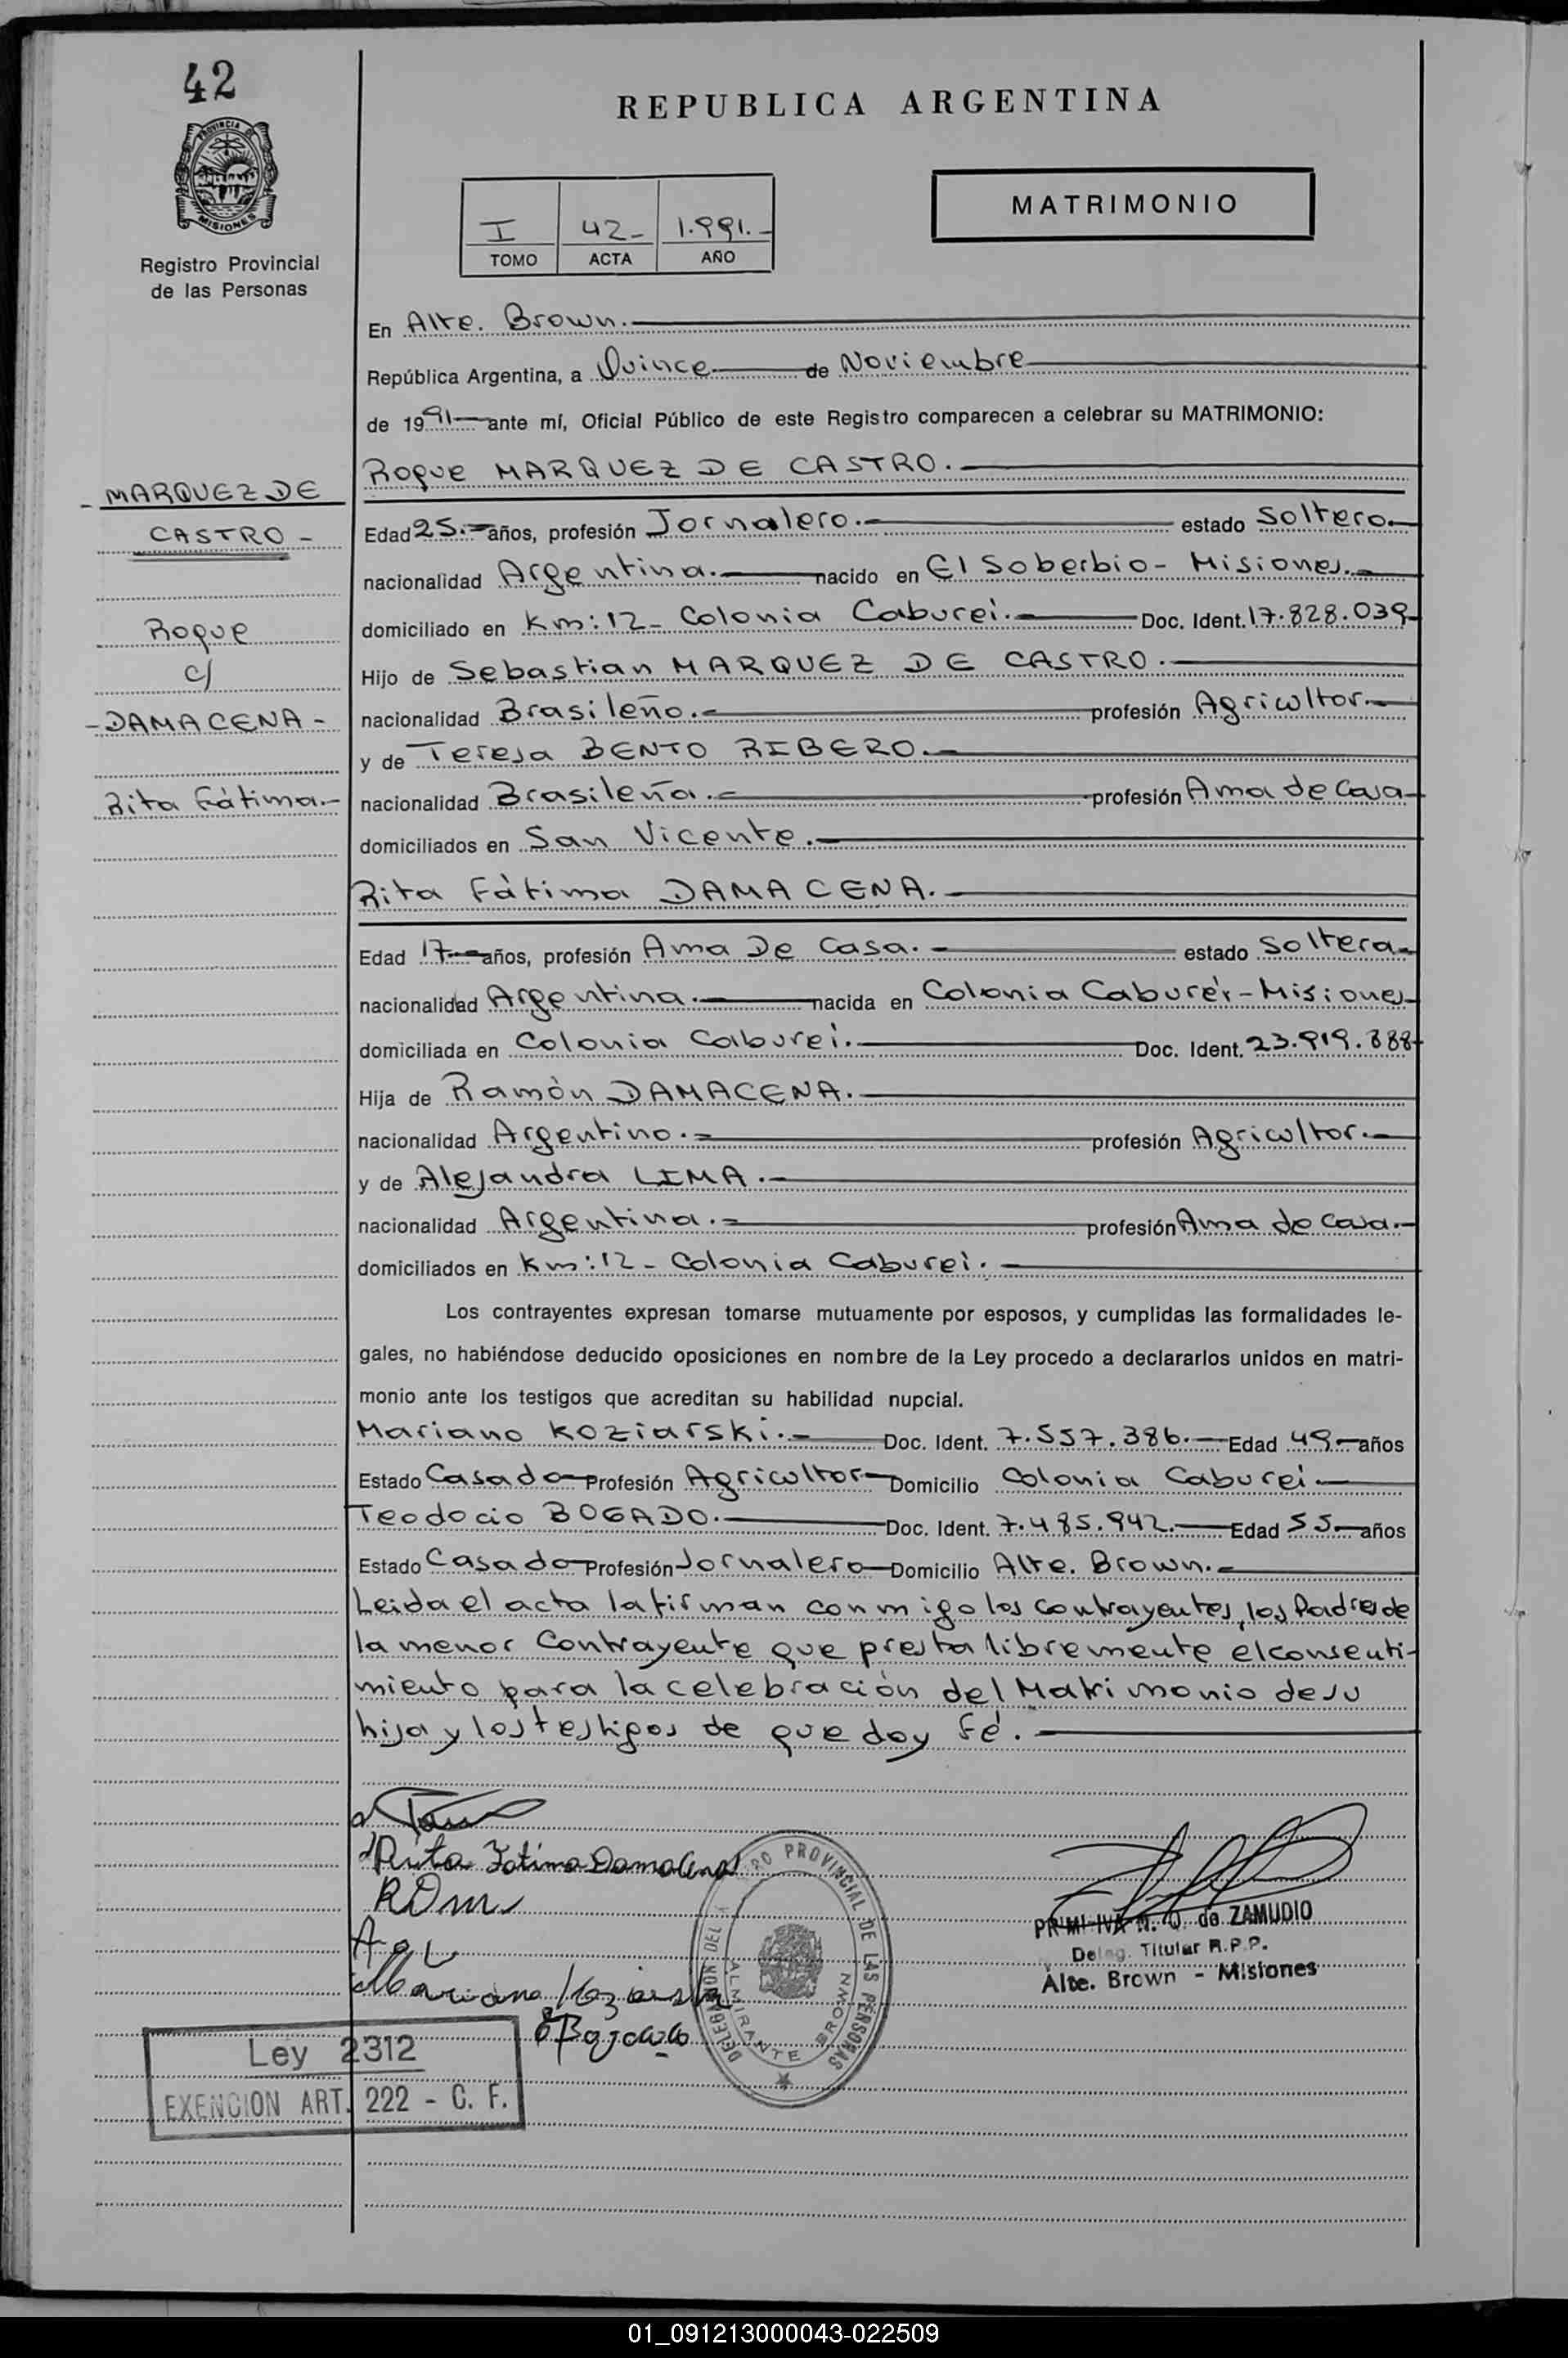 42
PROVINCIA DE
MISIONES
Registro Provincial
de las Personas
REPUBLICA ARGENTINA
I 42- 1.991.-
TOMO ACTA AÑO
MATRIMONIO
En Alte. Brown.
República Argentina, a Quince de Noviembre
de 1991 ante mí, Oficial Público de este Registro comparecen a celebrar su MATRIMONIO:
Roque MARQUEZ DE CASTRO.
- MARQUEZ DE
CASTRO -
Roque
c/
- DAMACENA -
Rita Fátima.-
Edad 25.- años, profesión Jornalero.- estado Soltero
nacionalidad Argentina. nacido en El Soberbio - Misiones.-
domiciliado en Km: 12_ Colonia Caburei. Doc. Ident. 17.828.039
Hijo de Sebastian MARQUEZ DE CASTRO.
nacionalidad Brasileño.- profesión Agricultor.-
y de Teresa BENTO RIBERO.-
nacionalidad Brasileña.- profesión Ama de Casa
domiciliados en San Vicente.-
Rita Fátima DAMACENA.
Edad 17 años, profesión Ama De Casa.- estado Soltera
nacionalidad Argentina. nacida en Colonia Caburéi - Misiones
domiciliada en Colonia Caburei. Doc. Ident. 23.919.888
Hija de Ramòn DAMACENA.
nacionalidad Argentino.- profesión Agricultor.-
y de Alejandra LIMA.-
nacionalidad Argentina.- profesión Ama de Casa.-
domiciliados en Km: 12 - Colonia Caburei.
Los contrayentes expresan tomarse mutuamente por esposos, y cumplidas las formalidades le-
gales, no habiéndose deducido oposiciones en nombre de la Ley procedo a declararlos unidos en matri-
monio ante los testigos que acreditan su habilidad nupcial.
Mariano KOZIARSKI.- Doc. Ident. 7.557.386. Edad 49 años
Estado Casado Profesión Agricultor Domicilio Colonia Caburei.
Teodocio BOGADO. Doc. Ident. 7.485.942. Edad 55 años
Estado Casado Profesión Jornalero Domicilio Alte. Brown.-
Leida el acta la firman conmigo los contrayentes, los Padres de
la menor Contrayente que presta libremente el consenti-
miento para la celebración del Matrimonio de su
hija y los testigos de que doy Fé.
Rita Fatima Damacena
RDm
A a L
Mariano Koziarski
Bogado
DELEGACION DEL PROVINCIAL DE LAS PERSONAS
ALMIRANTE BROWN
PRIMI IVA N. O. de ZAMUDIO
Deleg. Titular R.P.P.
Alte. Brown - Misiones
Ley 2312
EXENCION ART. 222 - C. F.
01_091213000043-022509